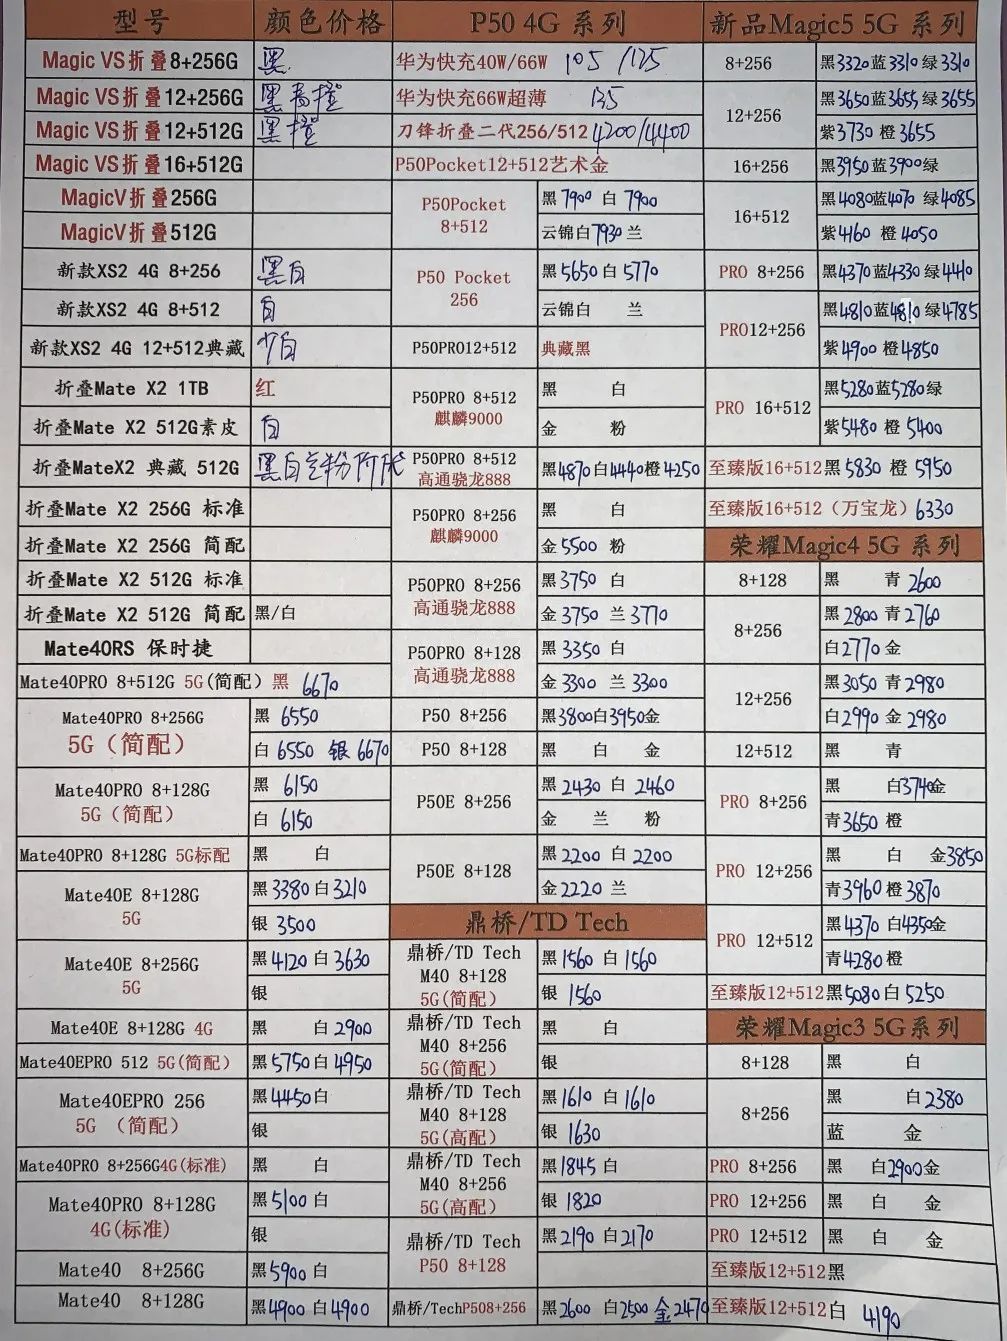 型号 颜色价格 P50 4G 系列 新品Magic5 5G 系列
Magic VS折叠8+256G 黑 华为快充40W/66W 105 /125 8+256 黑3320蓝3310 绿3310
Magic VS折叠12+256G 黑青橙 华为快充66W超薄 135 12+256 黑3650蓝3655 绿3655
Magic VS折叠12+512G 黑橙 刀锋折叠二代256/512 4200/4400 紫3730 橙3655
Magic VS折叠16+512G P50Pocket12+512艺术金 16+256 黑3950蓝3900绿
MagicV折叠256G P50Pocket 8+512 黑7900 白7900 16+512 黑4080蓝4070 绿4085
MagicV折叠512G 云锦白7930 兰 紫4160 橙4050
新款XS2 4G 8+256 黑白 P50 Pocket 256 黑5650白5770 PRO 8+256 黑4370蓝4330绿4410
新款XS2 4G 8+512 白 云锦白 兰 PRO12+256 黑4810蓝4810绿4785
新款XS2 4G 12+512典藏 少白 P50PRO12+512 典藏黑 紫4900 橙4850
折叠Mate X2 1TB 红 P50PRO 8+512 麒麟9000 黑 白 PRO 16+512 黑5280蓝5280绿
折叠Mate X2 512G素皮 白 金 粉 紫5480 橙5400
折叠MateX2 典藏 512G 黑白 粉 P50PRO 8+512 高通骁龙888 黑4870白4440橙4250 至臻版16+512黑5830 橙5950
折叠Mate X2 256G 标准 P50PRO 8+256 麒麟9000 黑 白 至臻版16+512（万宝龙）6330
折叠Mate X2 256G 简配 金5500 粉 荣耀Magic4 5G 系列
折叠Mate X2 512G 标准 P50PRO 8+256 高通骁龙888 黑3750 白 8+128 黑 青2600
折叠Mate X2 512G 简配 黑/白 金3750 兰3770 8+256 黑2800青2760
Mate40RS 保时捷 P50PRO 8+128 高通骁龙888 黑3350 白 白2770金
Mate40PRO 8+512G 5G(简配）黑 6670 金3300 兰3300 12+256 黑3050青2980
Mate40PRO 8+256G 5G（简配） 黑 6550 P50 8+256 黑3800白3950金 白2990 金2980
白 6550 银 6670 P50 8+128 黑 白 金 12+512 黑 青
Mate40PRO 8+128G 5G（简配） 黑 6150 P50E 8+256 黑2430 白2460 PRO 8+256 黑 白3740金
白 6150 金 兰 粉 青3650橙
Mate40PRO 8+128G 5G标配 黑 白 P50E 8+128 黑2200 白2200 PRO 12+256 黑 白 金3850
Mate40E 8+128G 5G 黑3380白3210 金2220兰 青3960橙3870
银 3500 鼎桥/TD Tech PRO 12+512 黑4370 白4350金
Mate40E 8+256G 5G 黑4120 白3630 鼎桥/TD Tech M40 8+128 5G(简配) 黑1560 白1560 青4280橙
银 银 1560 至臻版12+512黑5080白5250
Mate40E 8+128G 4G 黑 白2900 鼎桥/TD Tech M40 8+256 5G(简配) 黑 白 荣耀Magic3 5G系列
Mate40EPRO 512 5G(简配） 黑5750白4950 银 8+128 黑 白
Mate40EPRO 256 5G （简配） 黑4450白 鼎桥/TD Tech M40 8+128 5G(高配) 黑1610 白1610 8+256 黑 白2380
银 银 1630 蓝 金
Mate40PRO 8+256G4G(标准) 黑 白 鼎桥/TD Tech M40 8+256 5G(高配) 黑1845 白 PRO 8+256 黑 白2900金
Mate40PRO 8+128G 4G(标准) 黑5100白 银 1820 PRO 12+256 黑 白 金
银 鼎桥/TD Tech P50 8+128 黑2190 白2170 PRO 12+512 黑 白 金
Mate40 8+256G 黑5900白 至臻版12+512黑
Mate40 8+128G 黑4900 白4900 鼎桥/TechP508+256 黑2600 白2500 金2470 至臻版12+512白 4190